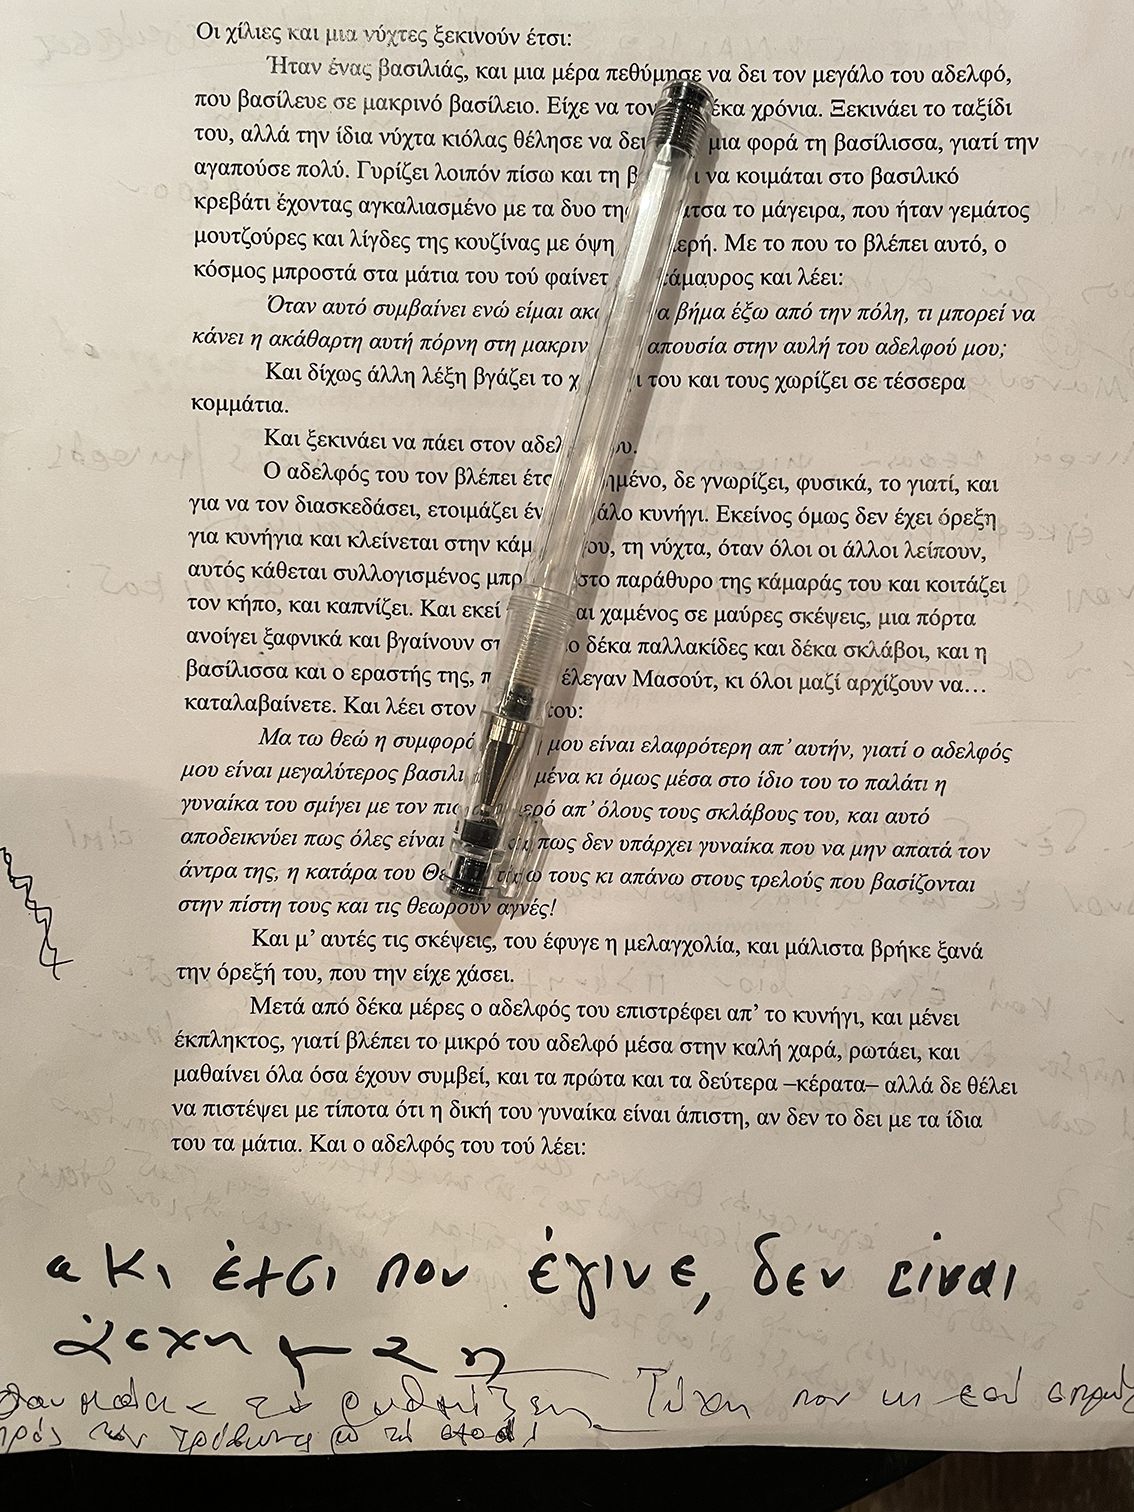 Οι χίλιες και μια νύχτες ξεκινούν έτσι:
Ήταν ένας βασιλιάς, και μια μέρα πεθύμησε να δει τον μεγάλο του αδελφό,
που βασίλευε σε μακρινό βασίλειο. Είχε να τον έκα χρόνια. Ξεκινάει το ταξίδι
του, αλλά την ίδια νύχτα κιόλας θέλησε να δει μια φορά τη βασίλισσα, γιατί την
αγαπούσε πολύ. Γυρίζει λοιπόν πίσω και τη να κοιμάται στο βασιλικό
κρεβάτι έχοντας αγκαλιασμένο με τα δυο της το μάγειρα, που ήταν γεμάτος
μουτζούρες και λίγδες της κουζίνας με όψη Με το που το βλέπει αυτό, ο
κόσμος μπροστά στα μάτια του τού φαίνεται και λέει:
Όταν αυτό συμβαίνει ενώ είμαι βήμα έξω από την πόλη, τι μπορεί να
κάνει η ακάθαρτη αυτή πόρνη στη μακρινή απουσία στην αυλή του αδελφού μου;
Και δίχως άλλη λέξη βγάζει το του και τους χωρίζει σε τέσσερα
κομμάτια.
Και ξεκινάει να πάει στον αδελφό του.
Ο αδελφός του τον βλέπει έτσι δε γνωρίζει, φυσικά, το γιατί, και
για να τον διασκεδάσει, ετοιμάζει ένα μεγάλο κυνήγι. Εκείνος όμως δεν έχει όρεξη
για κυνήγια και κλείνεται στην κάμαρά του, τη νύχτα, όταν όλοι οι άλλοι λείπουν,
αυτός κάθεται συλλογισμένος μπροστά στο παράθυρο της κάμαράς του και κοιτάζει
τον κήπο, και καπνίζει. Και εκεί χαμένος σε μαύρες σκέψεις, μια πόρτα
ανοίγει ξαφνικά και βγαίνουν στον κήπο δέκα παλλακίδες και δέκα σκλάβοι, και η
βασίλισσα και ο εραστής της, έλεγαν Μασούτ, κι όλοι μαζί αρχίζουν να…
καταλαβαίνετε. Και λέει στον του:
Μα τω θεώ η συμφορά μου είναι ελαφρότερη απ’ αυτήν, γιατί ο αδελφός
μου είναι μεγαλύτερος βασιλιάς από μένα κι όμως μέσα στο ίδιο του το παλάτι η
γυναίκα του σμίγει με τον πιο απ’ όλους τους σκλάβους του, και αυτό
αποδεικνύει πως όλες είναι πως δεν υπάρχει γυναίκα που να μην απατά τον
άντρα της, η κατάρα του Θεού πάνω τους κι απάνω στους τρελούς που βασίζονται
στην πίστη τους και τις θεωρούν αγνές!
Και μ’ αυτές τις σκέψεις, του έφυγε η μελαγχολία, και μάλιστα βρήκε ξανά
την όρεξή του, που την είχε χάσει.
Μετά από δέκα μέρες ο αδελφός του επιστρέφει απ’ το κυνήγι, και μένει
έκπληκτος, γιατί βλέπει το μικρό του αδελφό μέσα στην καλή χαρά, ρωτάει, και
μαθαίνει όλα όσα έχουν συμβεί, και τα πρώτα και τα δεύτερα –κέρατα– αλλά δε θέλει
να πιστέψει με τίποτα ότι η δική του γυναίκα είναι άπιστη, αν δεν το δει με τα ίδια
του τα μάτια. Και ο αδελφός του τού λέει:
Κι έτσι που έγινε, δεν είναι
άσχημα
Τύχη που